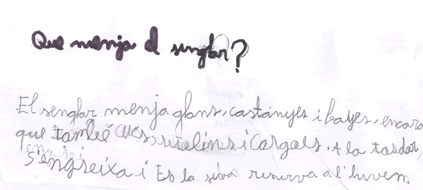 Que menja el senglar?
El senglar menja glans, castanyes i fages, encara
que també cucs, ratolins i cargols. A la tardor
s'engreixa i Es la seva reserva a l'hivern.